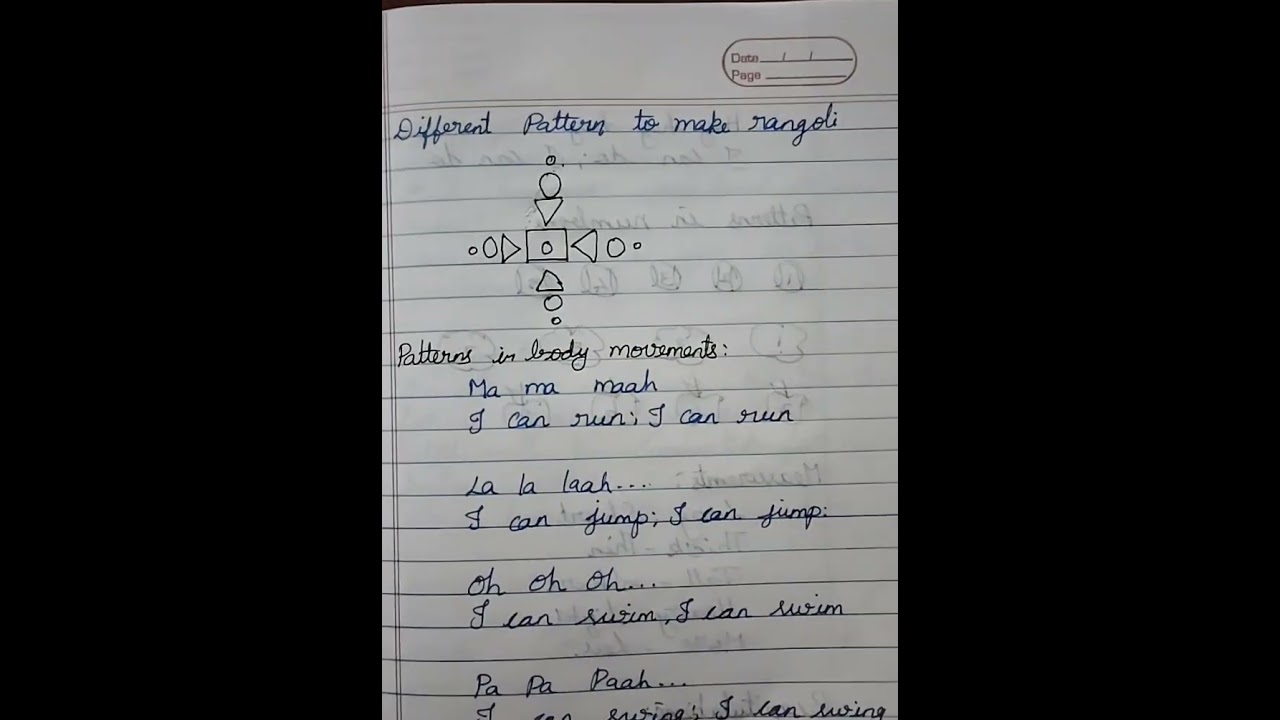 Date / /
Page
Different Pattern to make rangoli
Patterns in body movements:
Ma ma maah
I can run; I can run
La la laah...
I can jump; I can jump:
Oh oh Oh...
I can swim, I can swim
Pa Pa Paah...
I can swing; I can swing